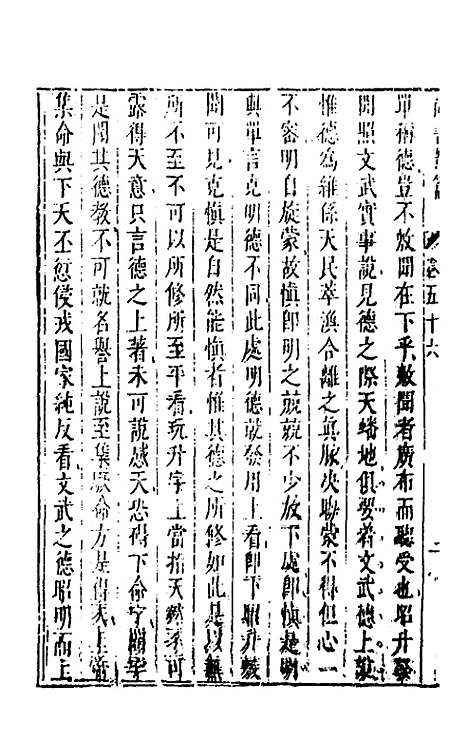 卷五十六
單稱德豈不敷聞在下乎敷聞者廣布而聽受也昭升
聞照文武實事說見德之際天蟠地俱要着文武德上說
惟德為維係天民萃渙合離之真脉決聯蒙不得但心一
不審明自旋蒙故慎即明之兢兢不少放下處即慎是明
與單言克明德不同此處明德就發用上看即下昭升敷
聞可見克慎是自然能慎者惟其德之所修如此是以無
所不至不可以所修所至平看玩升字上當指天
露得天意只言德之上著未可說感天恐碍下命字
是聞其德教不可就名譽上說至集厥命方是得天上帝
集命與下天丕愆侵戎國家純反看文武之德昭明而上